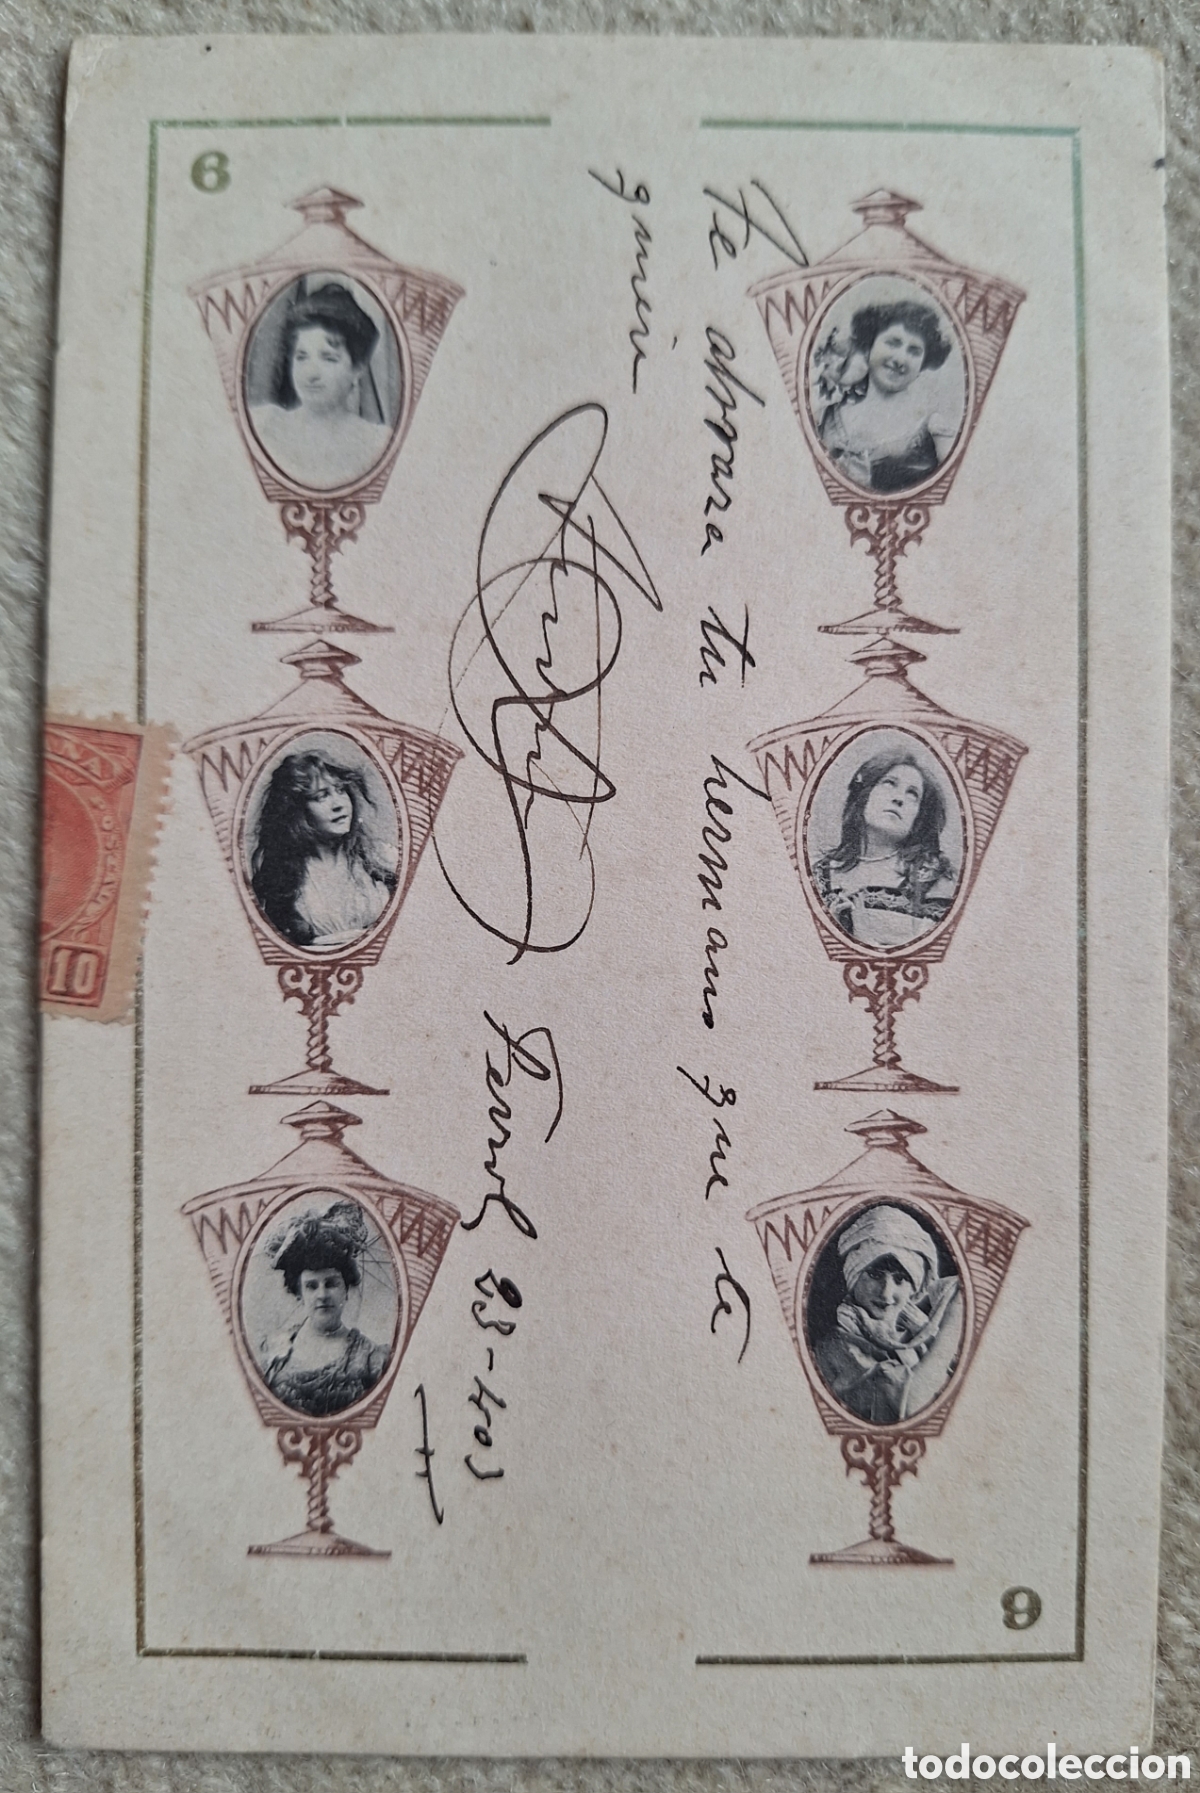 6
Te abraza tu hermano que te
quiere
Ferrol 23-4-03
10
6
todocoleccion